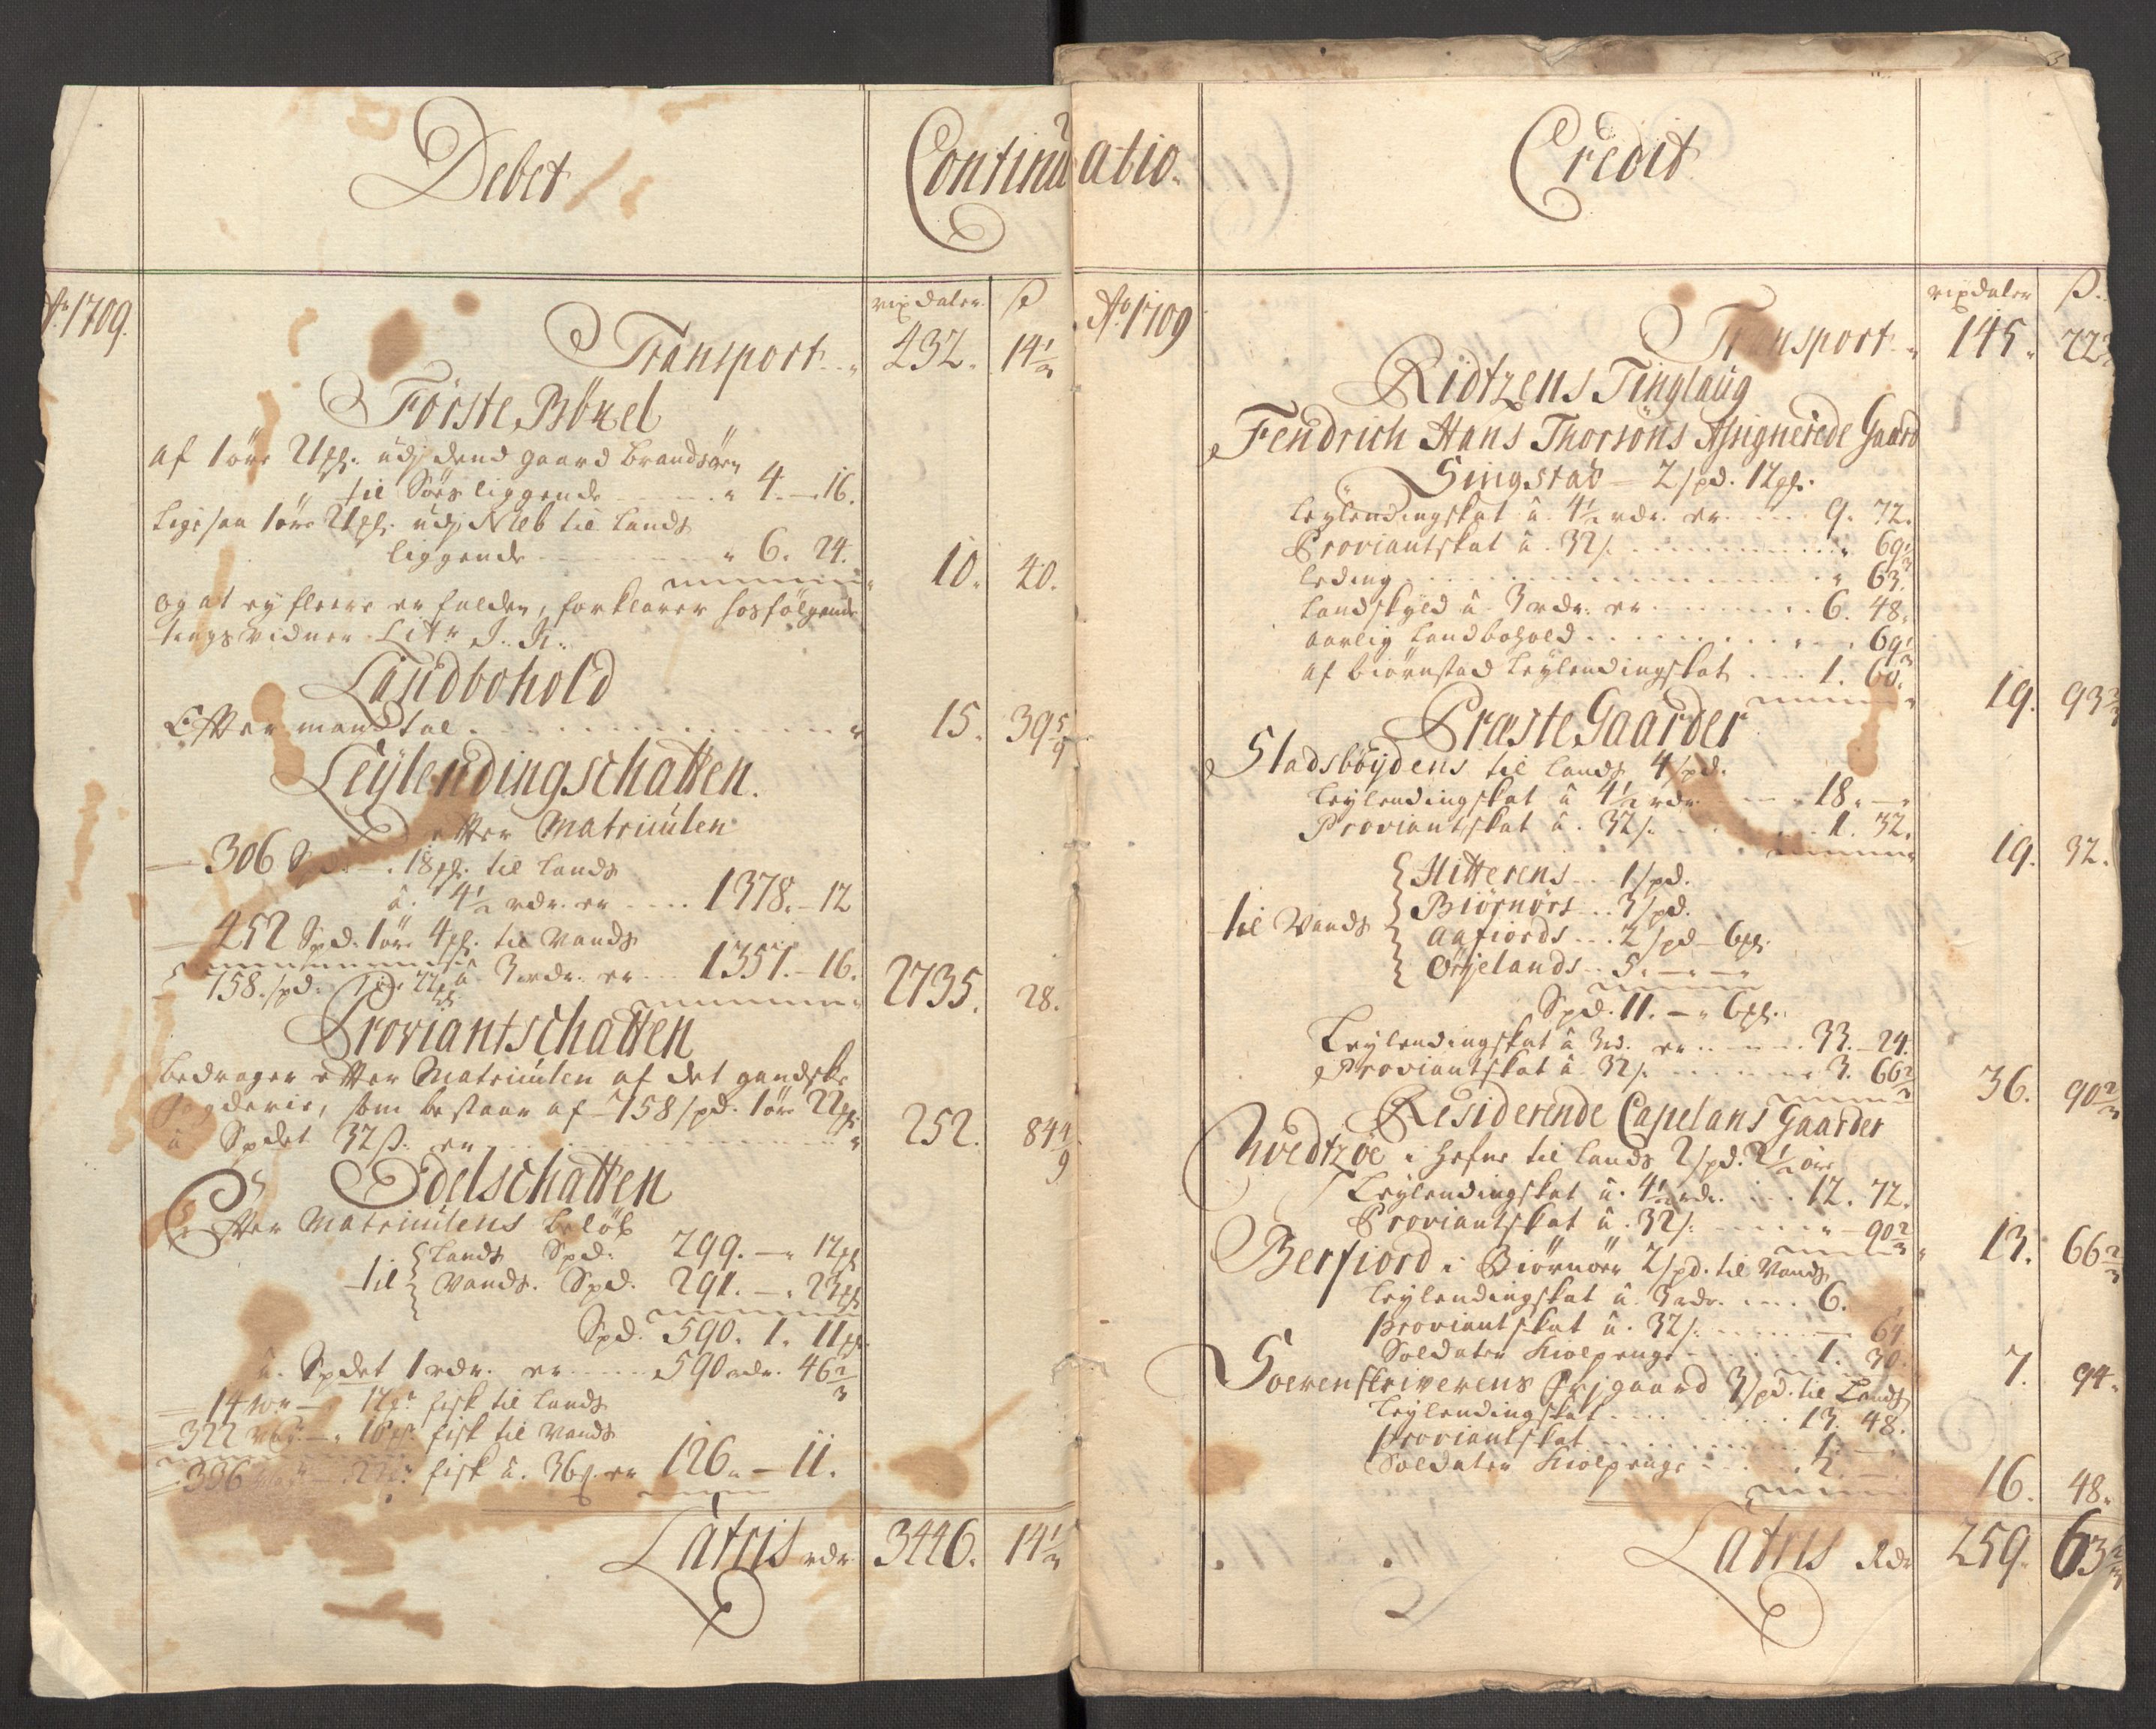 Debet
Continu
Ao 1709.
rixdaler. ß
Transport 432. 14 1/3
Förste Böxel
af 1 öre 21 pl. udj dend gaard Brandsören
til Söes liggende 4. - 16.
Ligesaa 1 öre 21 pl. udj Neb til Lands
liggende 6. 24. 10. 40.
og at ey fleere er falden, forklarer hosfölgende
tingsvidner Litr. J. K.
Landbohold
Effter mandtal 15. 39 5/9
Leÿlendingschatten.
effter Matriculen
306 Spd. - 18 pl. til Lands
à 4 1/2 rdr. er 1378. - 12
452 Spd. 1 öre 4 pl. til Vands
à 3 rdr. er 1357. - 16. 2735. 28.
758. spd. 1 öre 22 pl.
Proviantschatten
bedrager effter Matriculen af det gandske
fogderie, som bestaar af 758 spd. 1 öre 22 pl.
à Spdet 32 ß. er 252. 84 4/9
Odelschatten
Effter Matriculens beløb
til Lands Spd. 299. - 12 pl
Vands. Spd. 291. - 23 pl
Spd. 590. 1. 11 pl.
à Spdet 1 rdr. er 590 rdr. 46 2/3
14 wr - 12 pd fisk til Lands
322 wog - 10 pd. fisk til Vands
336 wog - 22 pd. fisk à 36 ß. er 126. - 11.
Latris rdr 3446. 14 1/3
atio.
Credit
Ao 1709
rixdaler ß.
Transport 145. 22
Ridtzens Tinglaug
Fendrich Hans Thorsöns Assignerede Gaard
Singstad - 2 spd. 12 pl.
Leÿlendingskat à 4 1/2 rdr. er 9. 72.
Proviantskat à 32 ß. 69 1/3
Leding 63.
Landskyld à 3 rdr. er 6. 48.
aarlig Landbohold 69 1/3
af Biørnstad Leÿlendingskat 1. 60. 19. 93 2/3
Præste Gaarder
Stadsböÿdens til Lands 4 spd.
Leÿlendingskat à 4 1/2 rdr. 18. -
Proviantskat à 32 ß. 1. 32. 19. 32.
Hitterens 1 spd.
til Vands Biørnörs 3 spd.
Aafiords 2 spd - 6 pl.
Ørjelands 5. - -
Spd. 11. - 6 pl.
Leÿlendingskat à 3 rd. er 33. - 24.
Proviantskat à 32 ß. 3. 66 2/3 36. 90 2/3
Residerende Capelans Gaarder
Qvedtzöe i Hefne til Lands 2 spd. 2 1/2 öre
Leÿlendingskat à 4 1/2 rdr. 12. 72.
Proviantskat à 32 ß. - 90 2/3 13. 66 2/3
Berfiord i Biørnör 2 spd. til Vands
Leÿlendingskat à 3 rdr. 6. -
Proviantskat à 32 ß. - 64
Soldater Kiolpenge 1. 30. 7. 94.
Soerenskriverens Frjgaard 3 spd. til Lands
Leÿlendingskat 13. 48.
Proviantskat 1. -
Soldater Kiolpenge 2. - 16. 48.
Latris Rdr 259. 63 2/3